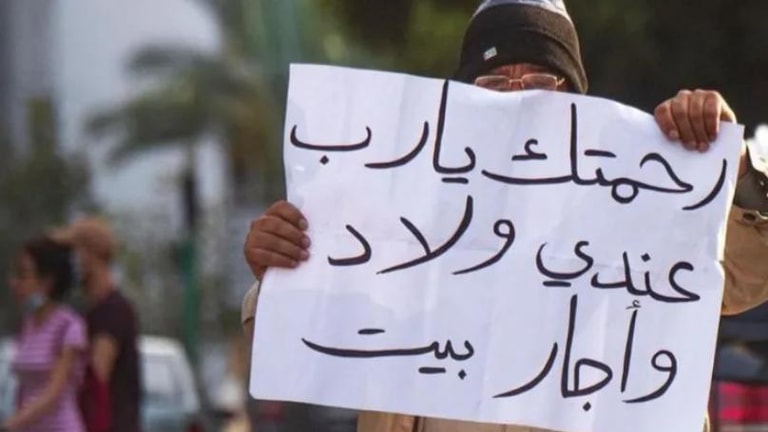 رحمتك يارب
عندي ولاد
وأجار بيت